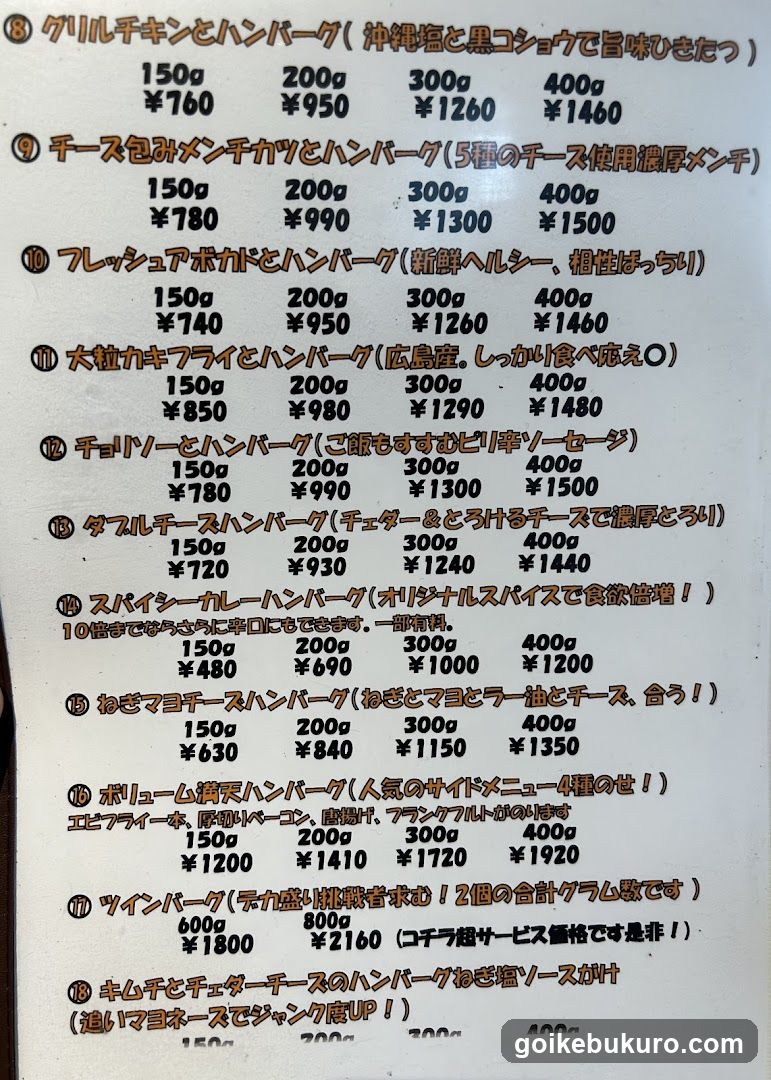 ⑧ グリルチキンとハンバーグ( 沖縄塩と黒コショウで旨味ひきたつ )
150g 200g 300g 400g
¥760 ¥950 ¥1260 ¥1460
⑨ チーズ包みメンチカツとハンバーグ(5種のチーズ使用濃厚メンチ)
150g 200g 300g 400g
¥780 ¥990 ¥1300 ¥1500
⑩ フレッシュアボカドとハンバーグ(新鮮ヘルシー、相性ばっちり)
150g 200g 300g 400g
¥740 ¥950 ¥1260 ¥1460
⑪ 大粒カキフライとハンバーグ(広島産。しっかり食べ応え〇)
150g 200g 300g 400g
¥850 ¥980 ¥1290 ¥1480
⑫ チョリソーとハンバーグ(ご飯もすすむピリ辛ソーセージ)
150g 200g 300g 400g
¥780 ¥990 ¥1300 ¥1500
⑬ ダブルチーズハンバーグ(チェダー&とろけるチーズで濃厚とろり)
150g 200g 300g 400g
¥720 ¥930 ¥1240 ¥1440
⑭ スパイシーカレーハンバーグ(オリジナルスパイスで食欲倍増! )
10倍までならさらに辛口にもできます。一部有料。
150g 200g 300g 400g
¥480 ¥690 ¥1000 ¥1200
⑮ ねぎマヨチーズハンバーグ(ねぎとマヨとラー油とチーズ、合う!)
150g 200g 300g 400g
¥630 ¥840 ¥1150 ¥1350
⑯ ボリューム満天ハンバーグ(人気のサイドメニュー4種のせ!)
エビフライ一本、厚切りベーコン、唐揚げ、フランクフルトがのります
150g 200g 300g 400g
¥1200 ¥1410 ¥1720 ¥1920
⑰ ツインバーグ(デカ盛り挑戦者求む!2個の合計グラム数です )
600g 800g
¥1800 ¥2160 (コチラ超サービス価格です是非!)
⑱ キムチとチェダーチーズのハンバーグねぎ塩ソースがけ
(追いマヨネーズでジャンク度UP!)
150g 200g 300g 400g
goikebukuro.com